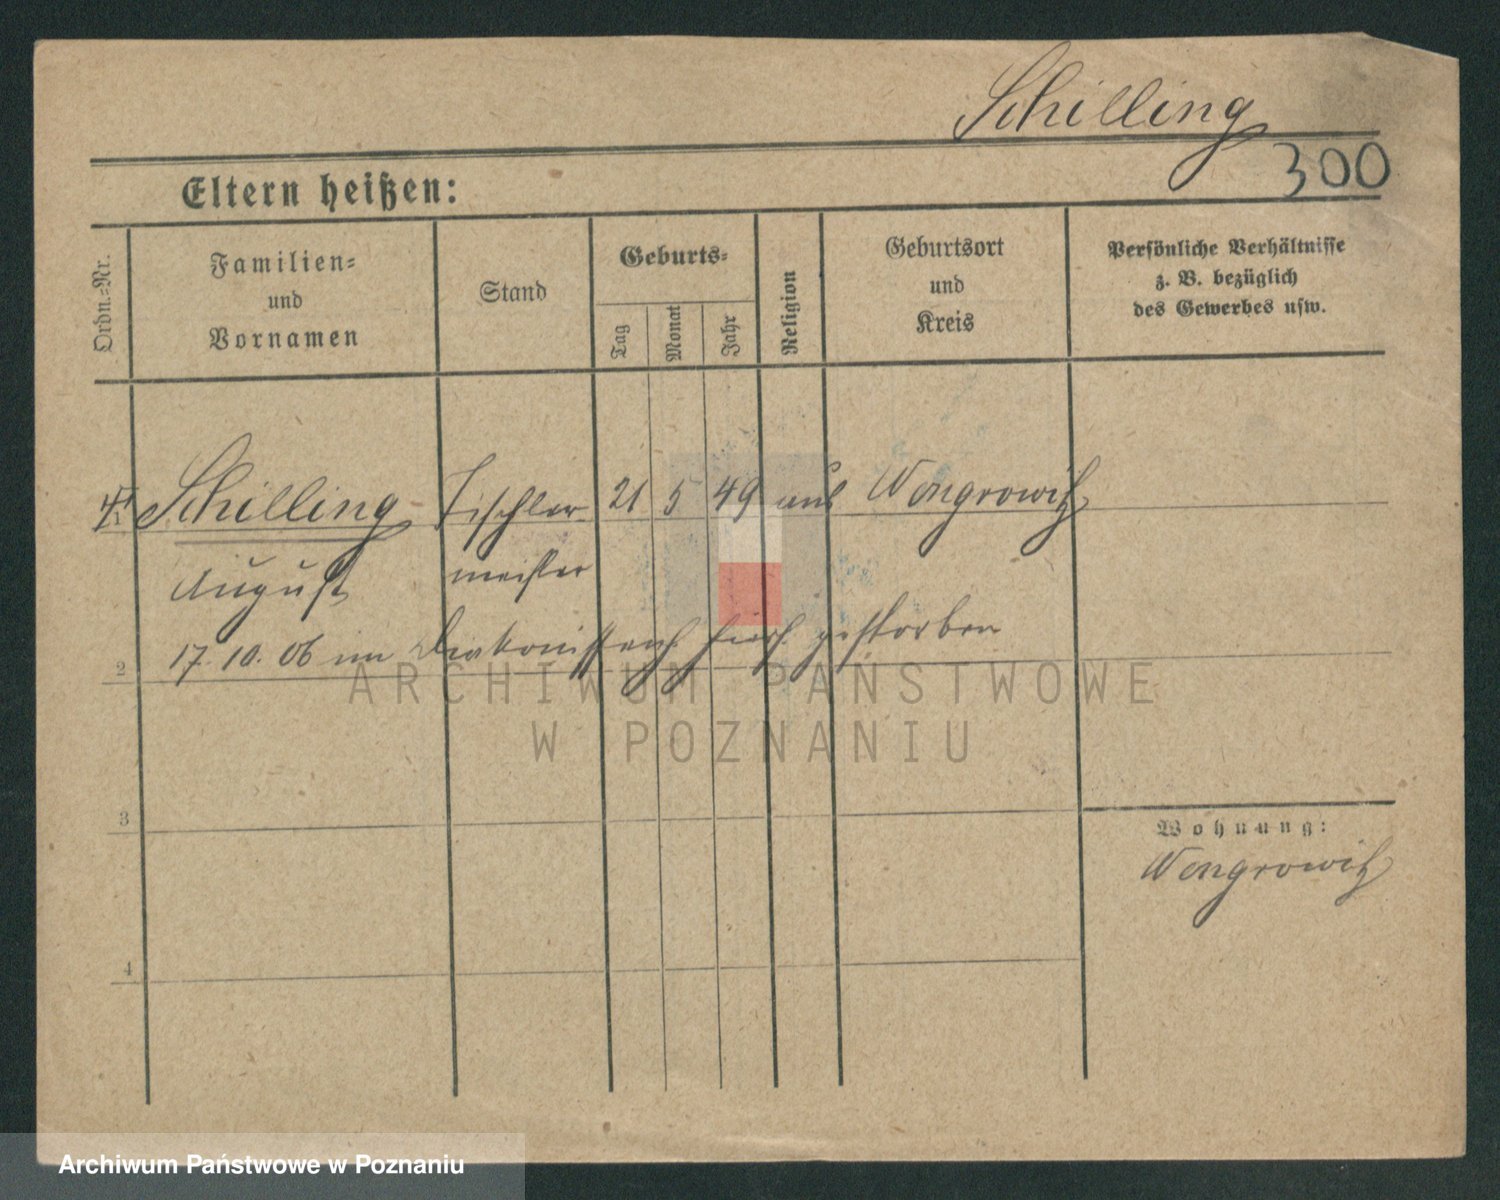 Schilling
300
Eltern heißen:
Ordn.-Nr.
Familien-
und
Vornamen
Stand
Geburts-
Tag
Monat
Jahr
Religion
Geburtsort
und
Kreis
Persönliche Verhältnisse
z. B. bezüglich
des Gewerbes usw.
Schilling Tischler- 21 5 49 Wongrowitz
August meister
2 17. 10. 06 im gestorben
ARCHIWUM PAŃSTWOWE
W POZNANIU
3
Wohnung:
Wongrowitz
4
Archiwum Państwowe w Poznaniu